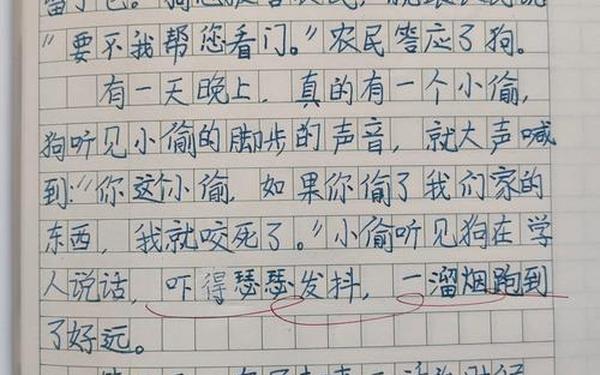 “要不我帮您看门。”农民答应了狗。
有一天晚上，真的有一个小偷，
狗听见小偷的脚步的声音，就大声喊
到：“你这个小偷，如果你偷了我们家的
东西，我就咬死了。”小偷听见狗在学
人说话，吓得瑟瑟发抖，一溜烟跑到
了好远。